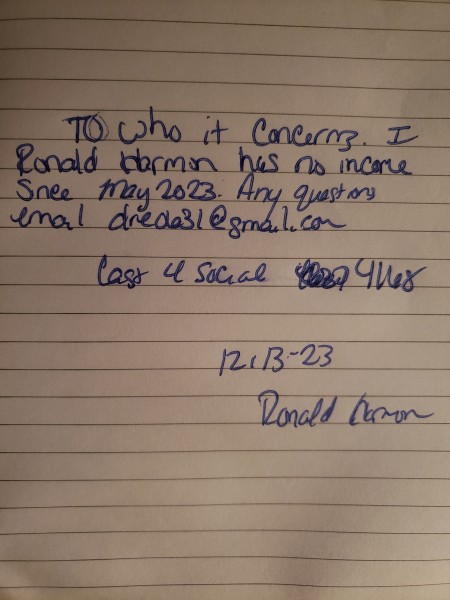 TO who it Concerns. I
Ronald Harmon has no income
Snce May 2023. Any questions
email
Last 4 Social
12-13-23
Ronald Harmon